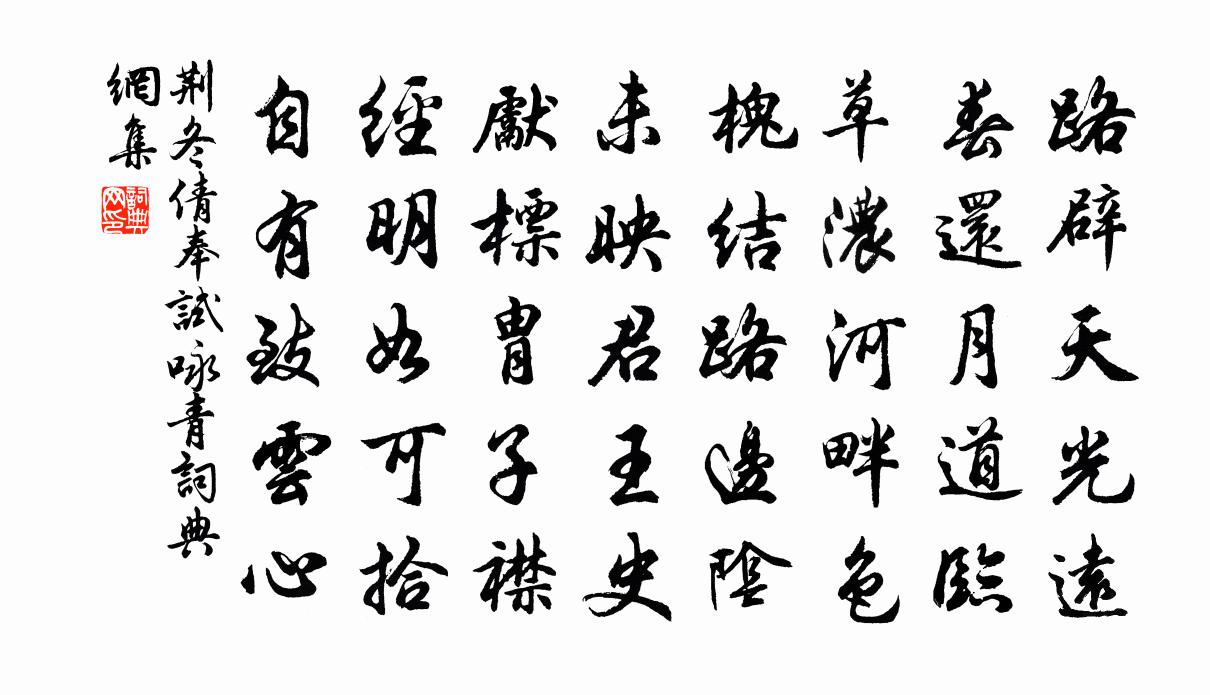 路辟天光遠
春還月道臨
草濃河畔色
槐結路邊陰
未映君王史
獻標胄子襟
經明如可拾
自有致雲心
荆冬倩奉試咏青詞典
網集
詞典
网印